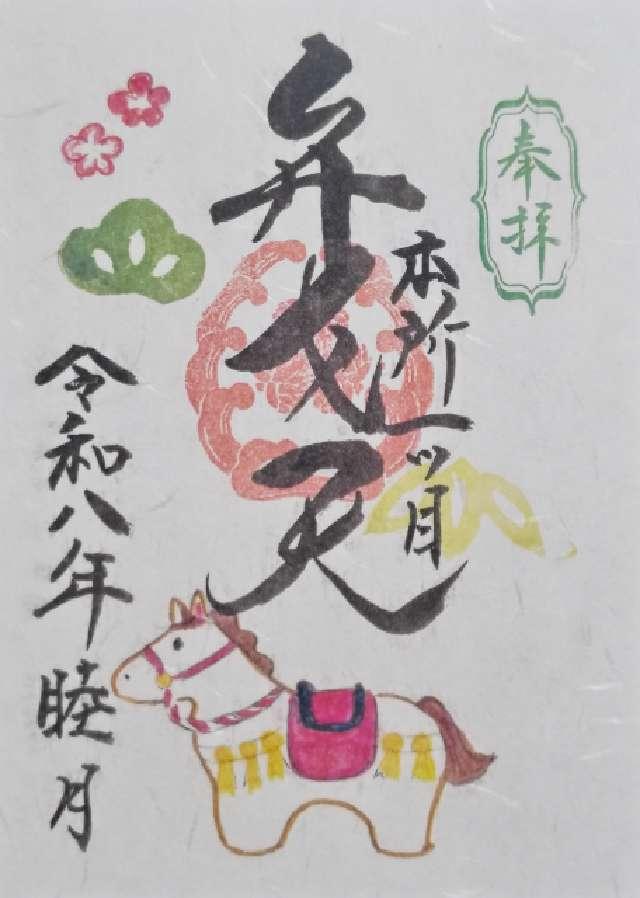 奉拝
本所一ツ目
弁才天
令和八年睦月